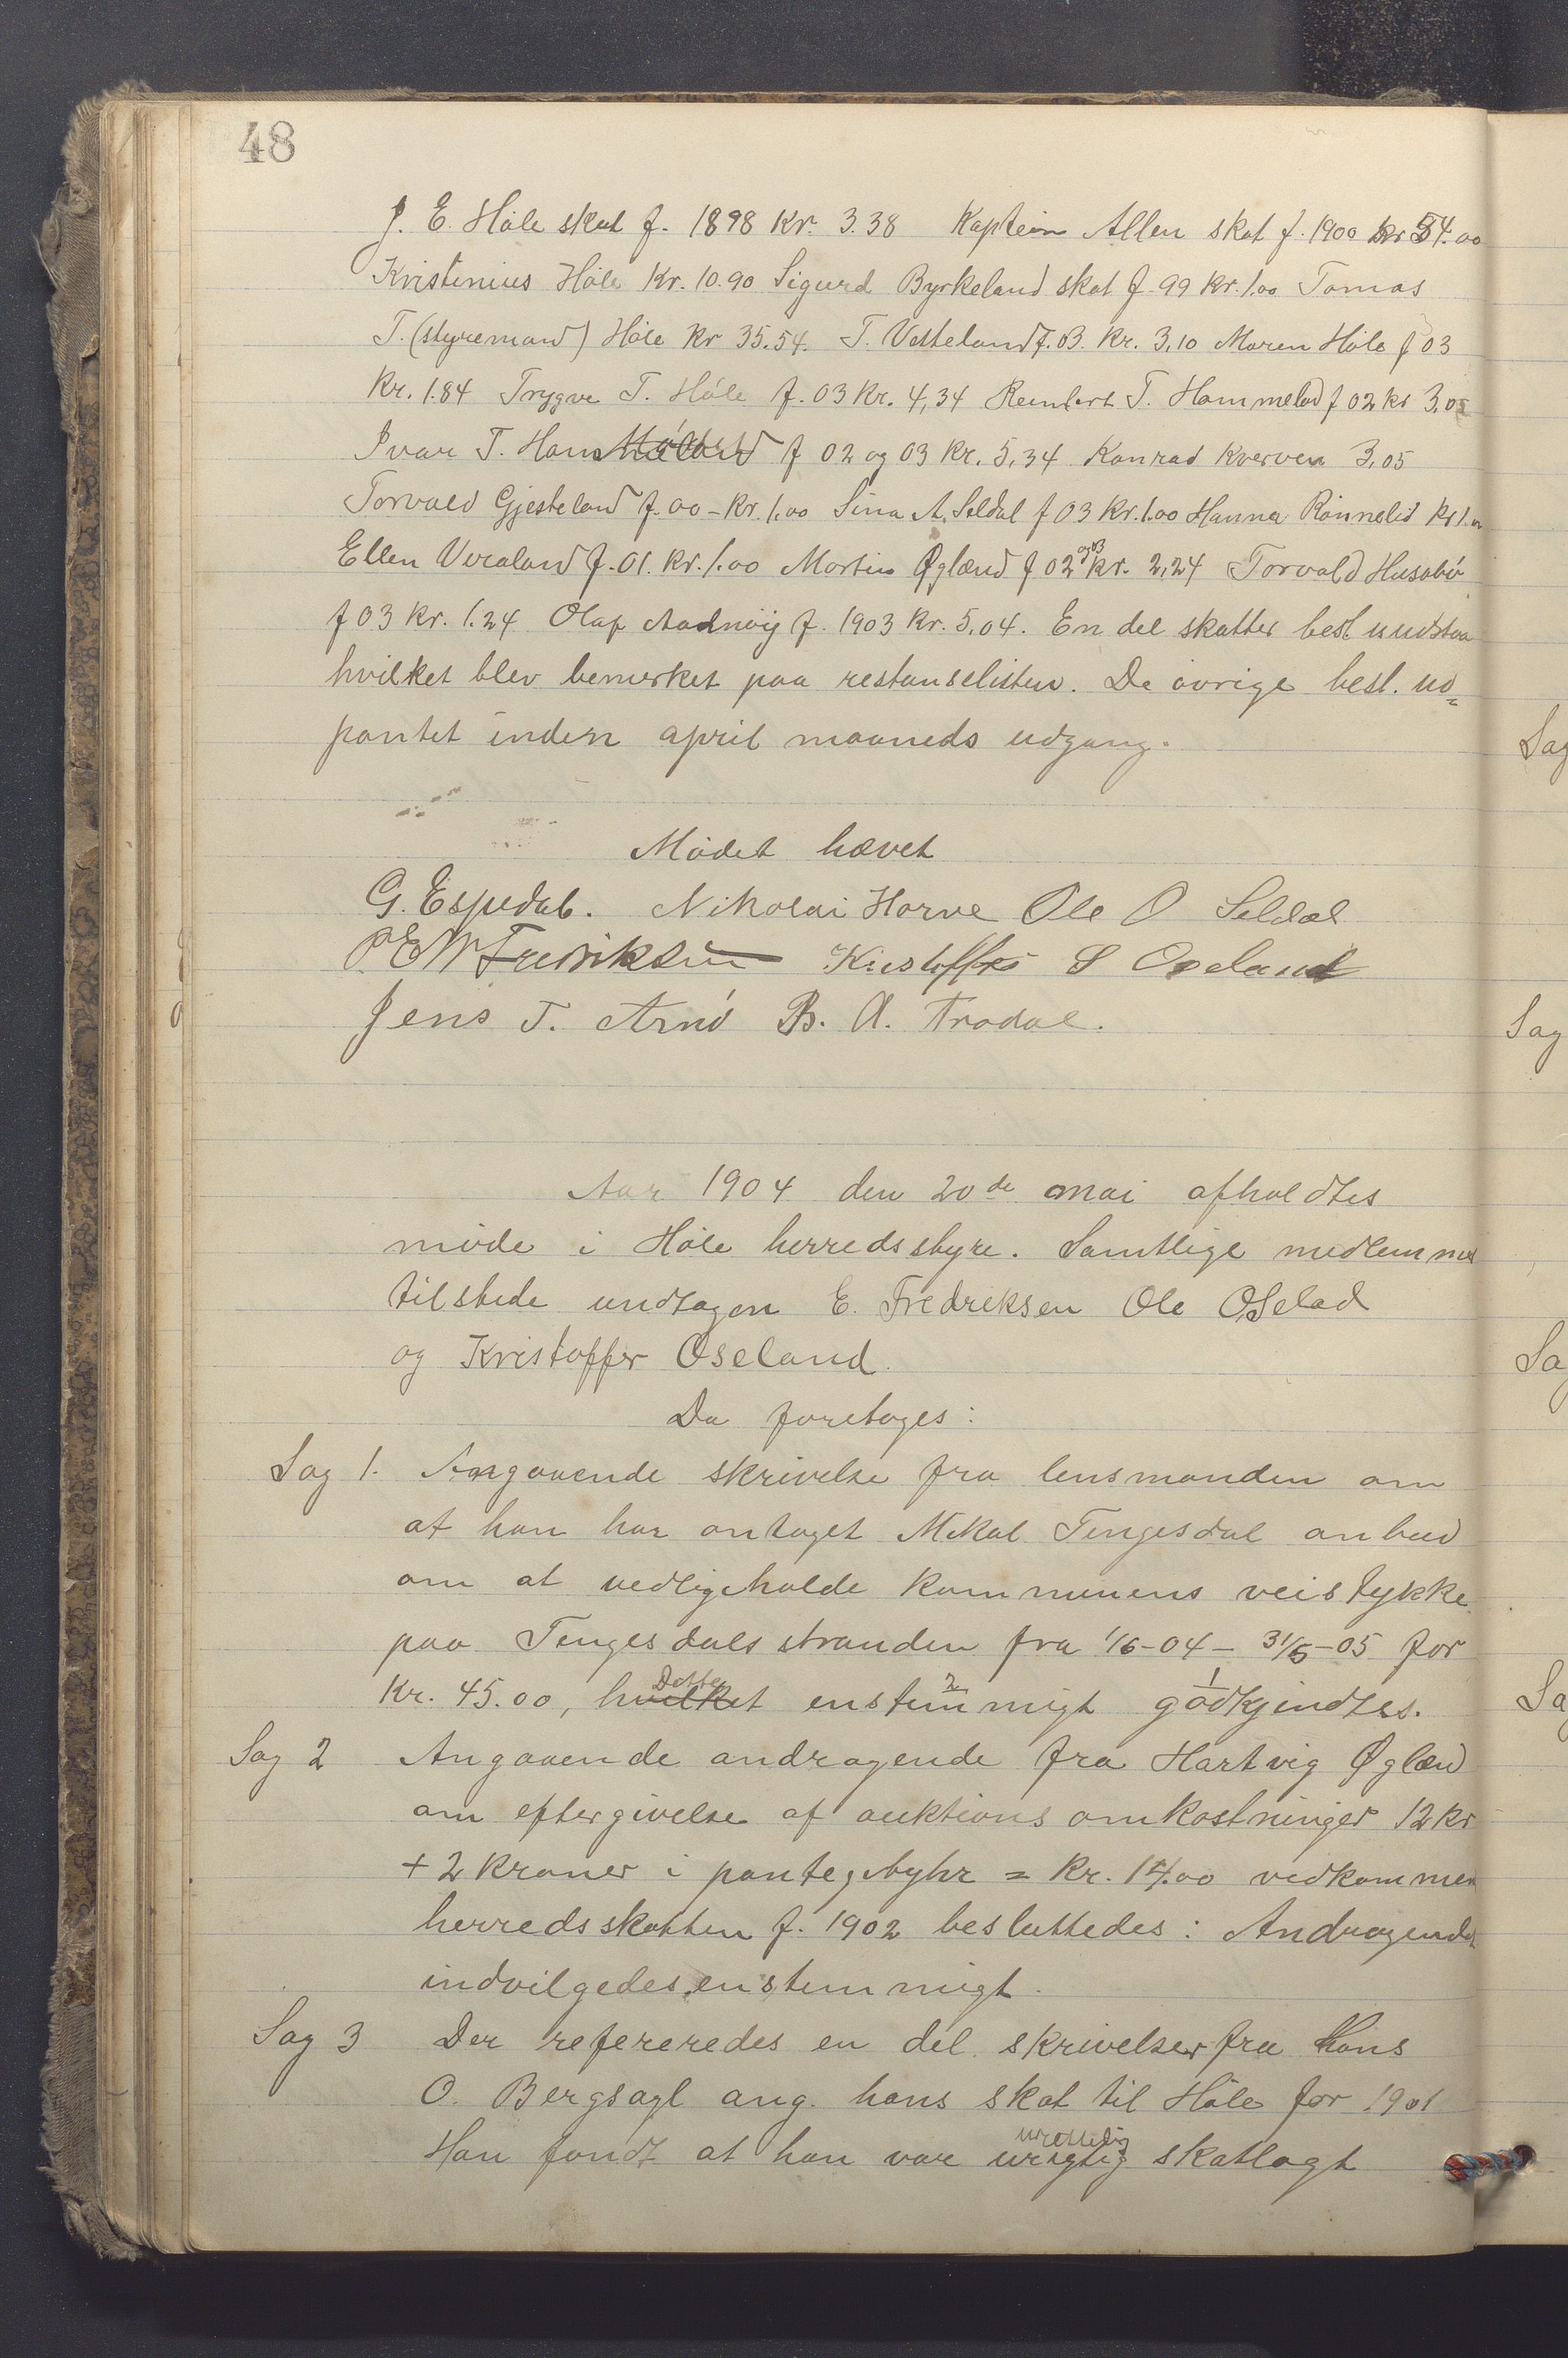 48
J. E. Höle skat f. 1898 Kr. 3.38 Kaptein Allen skat f. 1900 kr 54.00
Kristinius Höle Kr. 10.90 Sigurd Byrkeland skat f. 99 Kr. 1.00 Tomas
T. (styremand) Höle Kr 35.54. T. Vetteland f. 03. Kr. 3,10 Maren Höle f 03
Kr. 1.84 Trygve T. Höle f. 03 Kr. 4,34 Reinhert T. Hammelad f 02 kr 3,05
Ivar T. Ham f 02 og 03 Kr. 5,34 Konrad Kverven 3,05
Torvald Gjesteland f. 00 - Kr. 1,00 Sina A. Seldal f 03 Kr. 1.00 Hanna Rönnelid Kr 1.00
Ellen Veraland f. 01. Kr. 1.00 Martin Øglænd f 02 og 03 Kr. 2,24 Torvald Husabö
f 03 Kr. 1.24 Olaf Aadnöy f. 1903 Kr. 5,04. En del skatter besl. undstaa
hvilket blev bemerket paa restanselisten. De övrige besl. ud=
pantet inden april maaneds udgang.
Mödet hævet
G. Espedal. Nikolai Horve Ole O Seldal
P.E.M Fredriksen Kristoffer S Oseland
Jens T. Arnö B. A. Tradal.
Aar 1904 den 20de mai afholdtes
möde i Höle herredsstyre. Samtlige medlemmer
tilstede undtagen E. Fredriksen Ole O. Selad
og Kristoffer Oseland.
Da foretoges:
Sag 1. Angaaende skrivelse fra lensmanden om
at han har antaget Mikal Tengesdal anbud
om at vedligeholde kommunens veistykke
paa Tengesdalsstranden fra 1/6-04 - 31/5-05 for
Kr. 45.00, hvilket Dette enstemmigt 2 godkjendtes 1.
Sag 2 Angaaende andragende fra Hartvig Øglænd
om eftergivelse af auktionsomkostninger 12 kr
+ 2 kroner i pantegebyhr = Kr. 14.00 vedkommen
herredsskatten f. 1902 besluttedes: Andragendet
indvilgedes enstemmigt.
Sag 3 Der refereredes en del skrivelser fra Hans
O. Bergsagl ang. hans skat til Höle for 1901
Han fandt at han var urigtig urettelig skatlagt
Sag
Sag
Sa
Sa